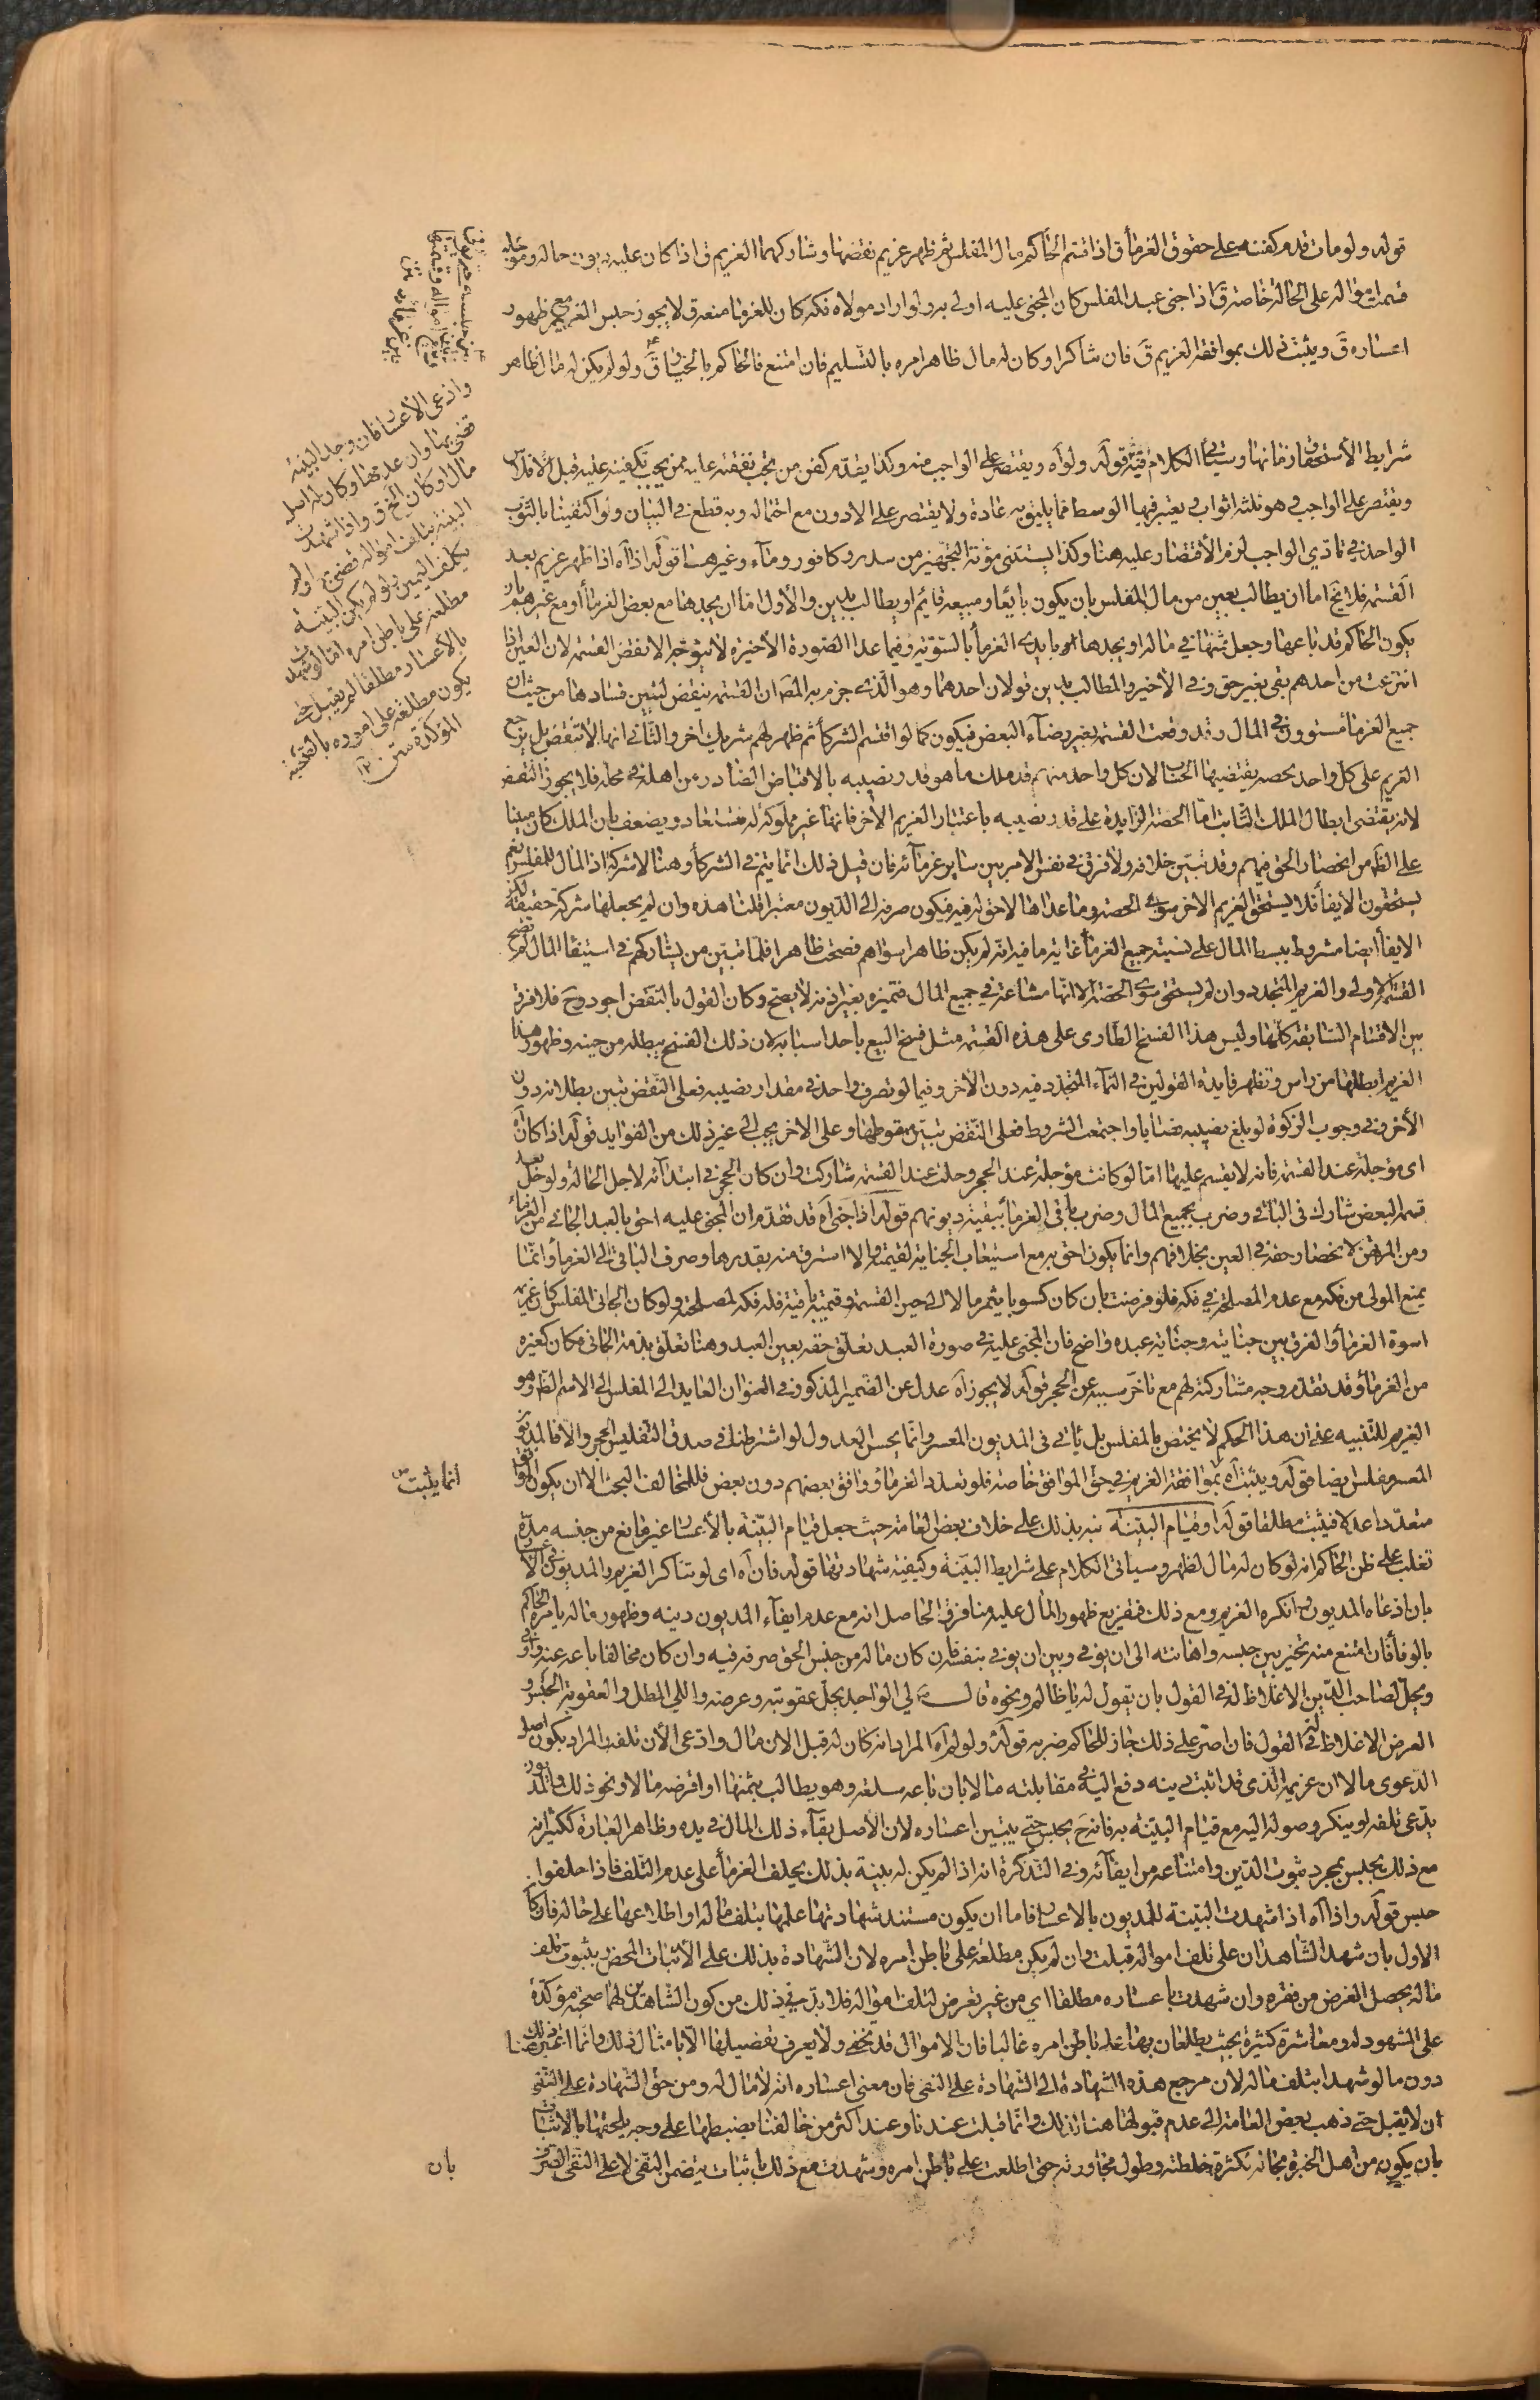 قوله ولو مات قدم كفنه على حقوق الغرماء ق اذا قسم الحاكم مال المفلس ثم ظهر غريم نقضها وشاركهما الغريم ق اذا كان عليه ديون حاله ومؤجله
قسم امواله على الحالة خاصة ق اذا جنى عبد المفلس كان المجنى عليه اولى به ولو اراد مولاه فكه كان للغرماء منعه ق لا يجوز حبس الغريم مع ظهور
اعساره ق ويثبت ذلك بموافقة الغريم ق فان تناكرا وكان له مال ظاهر امره بالتسليم فان امتنع فالحاكم بالخيار ق ولو لم يكن له مال ظاهر
وادعى الاعسار فان وجد البينة
قضى بها وان عدمها وكان له اصل
مال او كان الخ ق واذا شهدت
البينة بتلف امواله قضى بها ولم
يكلف اليمين ولو لم يكن البينة
مطلعة على باطن امره اما لو شهدت
بالاعسار مطلقا لم يقبل حتى
يكون مطلعة على اموره بالصحبة
المؤكدة
شرايط الاستحقاق وزمانها وسياتى الكلام فيه قوله ولو آه ويقتصر على الواجب منه وكذا يقدم كفن من تجب نفقته عليه ممن يجب تكفينه عليه قبل الافلاس
ويقتصر على الواجب وهو ثلثة اثواب يعتبر فيها الوسط مما يليق به عادة ولا يقتصر على الادون مع احتماله وبه قطع فى البيان ولو اكتفينا بالثوب
الواحد فى تادى الواجب لزم الاقتصار عليه هنا وكذا يستثنى مؤنة التجهيز من سدر وكافور وماء وغيرهما قوله اذا آه اذا ظهر غريم بعد
القسمة فلا يخ اما ان يطالب بعين من مال المفلس بان يكون بايعا ومبيعه قائم او يطالب بدين والاول اما ان يجدها مع بعض الغرماء او مع غيرهم بان
يكون الحاكم قد باعها وجعل ثمنها فى ماله او يجدها بايدى الغرماء بالسوية وفيما عدا الصورة الاخيرة لا يتوجه الا نقض القسمة لان العين اذا
انتزعت من احدهم بقى بغير حق وفى الاخير والمطالب بدين قولان احدهما وهو الذى جزم به المص ان القسمة ينقض لتبين فسادها من حيث ان
جميع الغرماء مستوون فى المال وقد وقعت القسمة بغير رضاء البعض فيكون كما لو اقتسم الشركاء ثم ظهر لهم شريك اخر والثانى انها لا تنقض بل يرجع
الغريم على كل واحد بحصة يقتضيها الحساب لان كل واحد منهم قد ملك ما هو قدر نصيبه بالاقباض الصادر من اهله فى محله فلا يجوز النقض
لانه يقتضى ابطال الملك الثابت اما الحصة الزايدة على قدر نصيبه باعتبار الغريم الاخر فانها غير مملوكة له فتستعاد ويضعف بان الملك كان مبنيا
على الظهر من انحصار الحق فيهم وقد تبين خلافه ولا فرق فى نفس الامر بين ساير غرمائه فان قيل ذلك انما يتم فى الشركاء وهنا لا شركة اذ المال للمفلس نعم
يستحقون الايفاء فلا يستحق الغريم الاخر سوى الحصة وما عداها لا حق له فيه فيكون صرفه الى الديون معتبرا قلنا هذه وان لم يجعلها شركة حقيقية لكن
الايفاء ايضا مشروط ببسط المال على نسبة جميع الغرماء غاية ما فيه انه لم يكن ظاهرا سواهم فصحت ظاهرا فلما تبين من يشاركهم فى استيفاء المال لم تصح
القسمة الاولى والغريم المتجدد وان لم يستحق سوى الحصة الا انها مشاعة فى جميع المال فتميزه بغير اذنه لا يصح وكان القول بالنقض اجود وح فلا فرق
بين الاقسام السابقة كلها وليس هذا الفسخ الطارى على هذه القسمة مثل فسخ البيع باحد اسبابه لان ذلك الفسخ يبطله من حينه وظهور هذا
الغريم ابطلها من راس وتظهر فايدة القولين فى النماء المتجدد فيه دون الاخر وفيما لو تصرف واحد فى مقدار نصيبه فعلى النقض تبين بطلانه دون
الاخر وفى وجوب الزكوة لو بلغ نصيبه نصابا واجتمعت الشروط فعلى النقض تبين سقوطها وعلى الاخر يجب الى غير ذلك من الفوايد قوله اذا كان آه
اى مؤجلة عند القسمة فانه لا يقسم عليها اما لو كانت مؤجلة عند الحجر وحلت عند القسمة شاركت وان كان الحجر فى ابتدائه لاجل الحالة ولو حل بعد
قسمة البعض شارك فى الباقى وضرب بجميع المال وضرب باقى الغرماء ببقية ديونهم قوله اذا جنى آه قد تقدم ان المجنى عليه احق بالعبد الجانى من الغرماء
ومن المرتهن لانحصار حقه فى العين بخلافهم وانما يكون احق به مع استيعاب الجناية لقيمته والا استرق منه بقدرها وصرف الباقى الى الغرماء وانما
يمنع المولى من فكه مع عدم المصلحة فى فكه فلو فرضت بان كان كسوبا يثمر مالا الى حين القسمة وقيمته باقية فله فكه لمصلحة ولو كان الجانى المفلس كان غريمه
اسوة الغرماء والفرق بين جنايته وجناية عبده واضح فان المجنى عليه فى صورة العبد تعلق حقه بعين العبد وهنا تعلق بذمة الجانى فكان كغيره
من الغرماء وقد تقدم وجه مشاركته لهم مع تاخر سببه عن الحجر قوله لا يجوز آه عدل عن الضمير المذكور فى العنوان العايد الى المفلس الى الاسم الظ وهو
الغريم للتنبيه على ان هذا الحكم لا يختص بالمفلس بل ياتى فى المديون المعسر وانما يحسن العدول لو اشترطنا فى صدق التفليس الحجر والا فالمديون
المعسر مفلس ايضا قوله ويثبت آه بموافقة الغريم فى حق الموافق خاصة فلو تعدد الغرماء ووافق بعضهم دون بعض فللمخالف البحث الا ان يكون الموافق
انما يثبت
متعددا عدلا فيثبت مطلقا قوله او قيام البينة نبه بذلك على خلاف بعض العامة حيث جعل قيام البينة بالاعسار غير مانع من حبسه مدة
تغلب على ظن الحاكم انه لو كان له مال لظهر وسياتى الكلام على شرايط البينة وكيفية شهادتها قوله فان آه اى لو تناكر الغريم والمديون فى الاعسار
بان ادعاه المديون وانكره الغريم ومع ذلك فتفريع ظهور المال عليه منافر الحاصل انه مع عدم ايفاء المديون دينه وظهور ماله يامره الحاكم
بالوفاء فان امتنع منه تخير بين حبسه واهانته الى ان يوفى وبين ان يوفى بنفسه فان كان ماله من جنس الحق صرفه فيه وان كان مخالفا باعه عنه واوفى
ويحل لصاحب الدين الاغلاظ له فى القول بان يقول له يا ظالم ونحوه قال لى الواجد يحل عقوبته وعرضه واللى المطل والعقوبة الحبس و
العرض الاغلاظ له فى القول فان اصر على ذلك جاز للحاكم ضربه قوله ولو لم آه المراد انه كان له قبل الان مال وادعى الان تلفه المراد بكون اصل
الدعوى مالا ان غريمه الذى قد اثبت دينه دفع اليه فى مقابلته مالا بان باعه سلعة وهو يطالب بثمنها او اقرضه مالا ونحو ذلك والمديون
يدعى تلفه او ينكر وصوله اليه مع قيام البينة به فانه ح يحبس حتى يتبين اعساره لان الاصل بقاء ذلك المال فى يده وظاهر العبارة ككثير انه
مع ذلك يحبس بمجرد ثبوت الدين وامتناعه من ايفائه وفى التذكرة انه اذا لم يكن له بينة بذلك يحلف الغرماء على عدم التلف فاذا حلفوا
حبس قوله واذا آه اذا شهدت البينة للمديون بالاعسار فاما ان يكون مستند شهادتها علمها بتلف ماله او اطلاعها على حاله فان كان
الاول بان شهد الشاهدان على تلف امواله قبلت وان لم يكن مطلعة على باطن امره لان الشهادة بذلك على الاثبات المحض وبثبوت تلف
ماله يحصل الغرض من فقره وان شهدت باعساره مطلقا اى من غير تعرض لتلف امواله فلا بد فى ذلك من كون الشاهدين لهما صحبة مؤكدة
على المشهود له ومعاشرة كثيرة بحيث يطلعان بها على باطن امره غالبا فان الاموال قد تخفى ولا يعرف تفصيلها الا بامثال ذلك وانما اعتبر ذلك هنا
دون ما لو شهدا بتلف ماله لان مرجع هذه الشهادة الى الشهادة على النفى فان معنى اعساره انه لا مال له ومن حق الشهادة على النفى
ان لا يقبل حتى ذهب بعض العامة الى عدم قبولها هنا لذلك وانما قبلت عندنا وعند اكثر من خالفنا بضبطها على وجه يلحقها بالاثبات
بان يكون من اهل الخبرة بحاله بكثرة خلطته وطول مجاورته حتى اطلعت على باطن امره وشهدت مع ذلك باثبات يتضمن النفى لا على النفى الصرف
بان